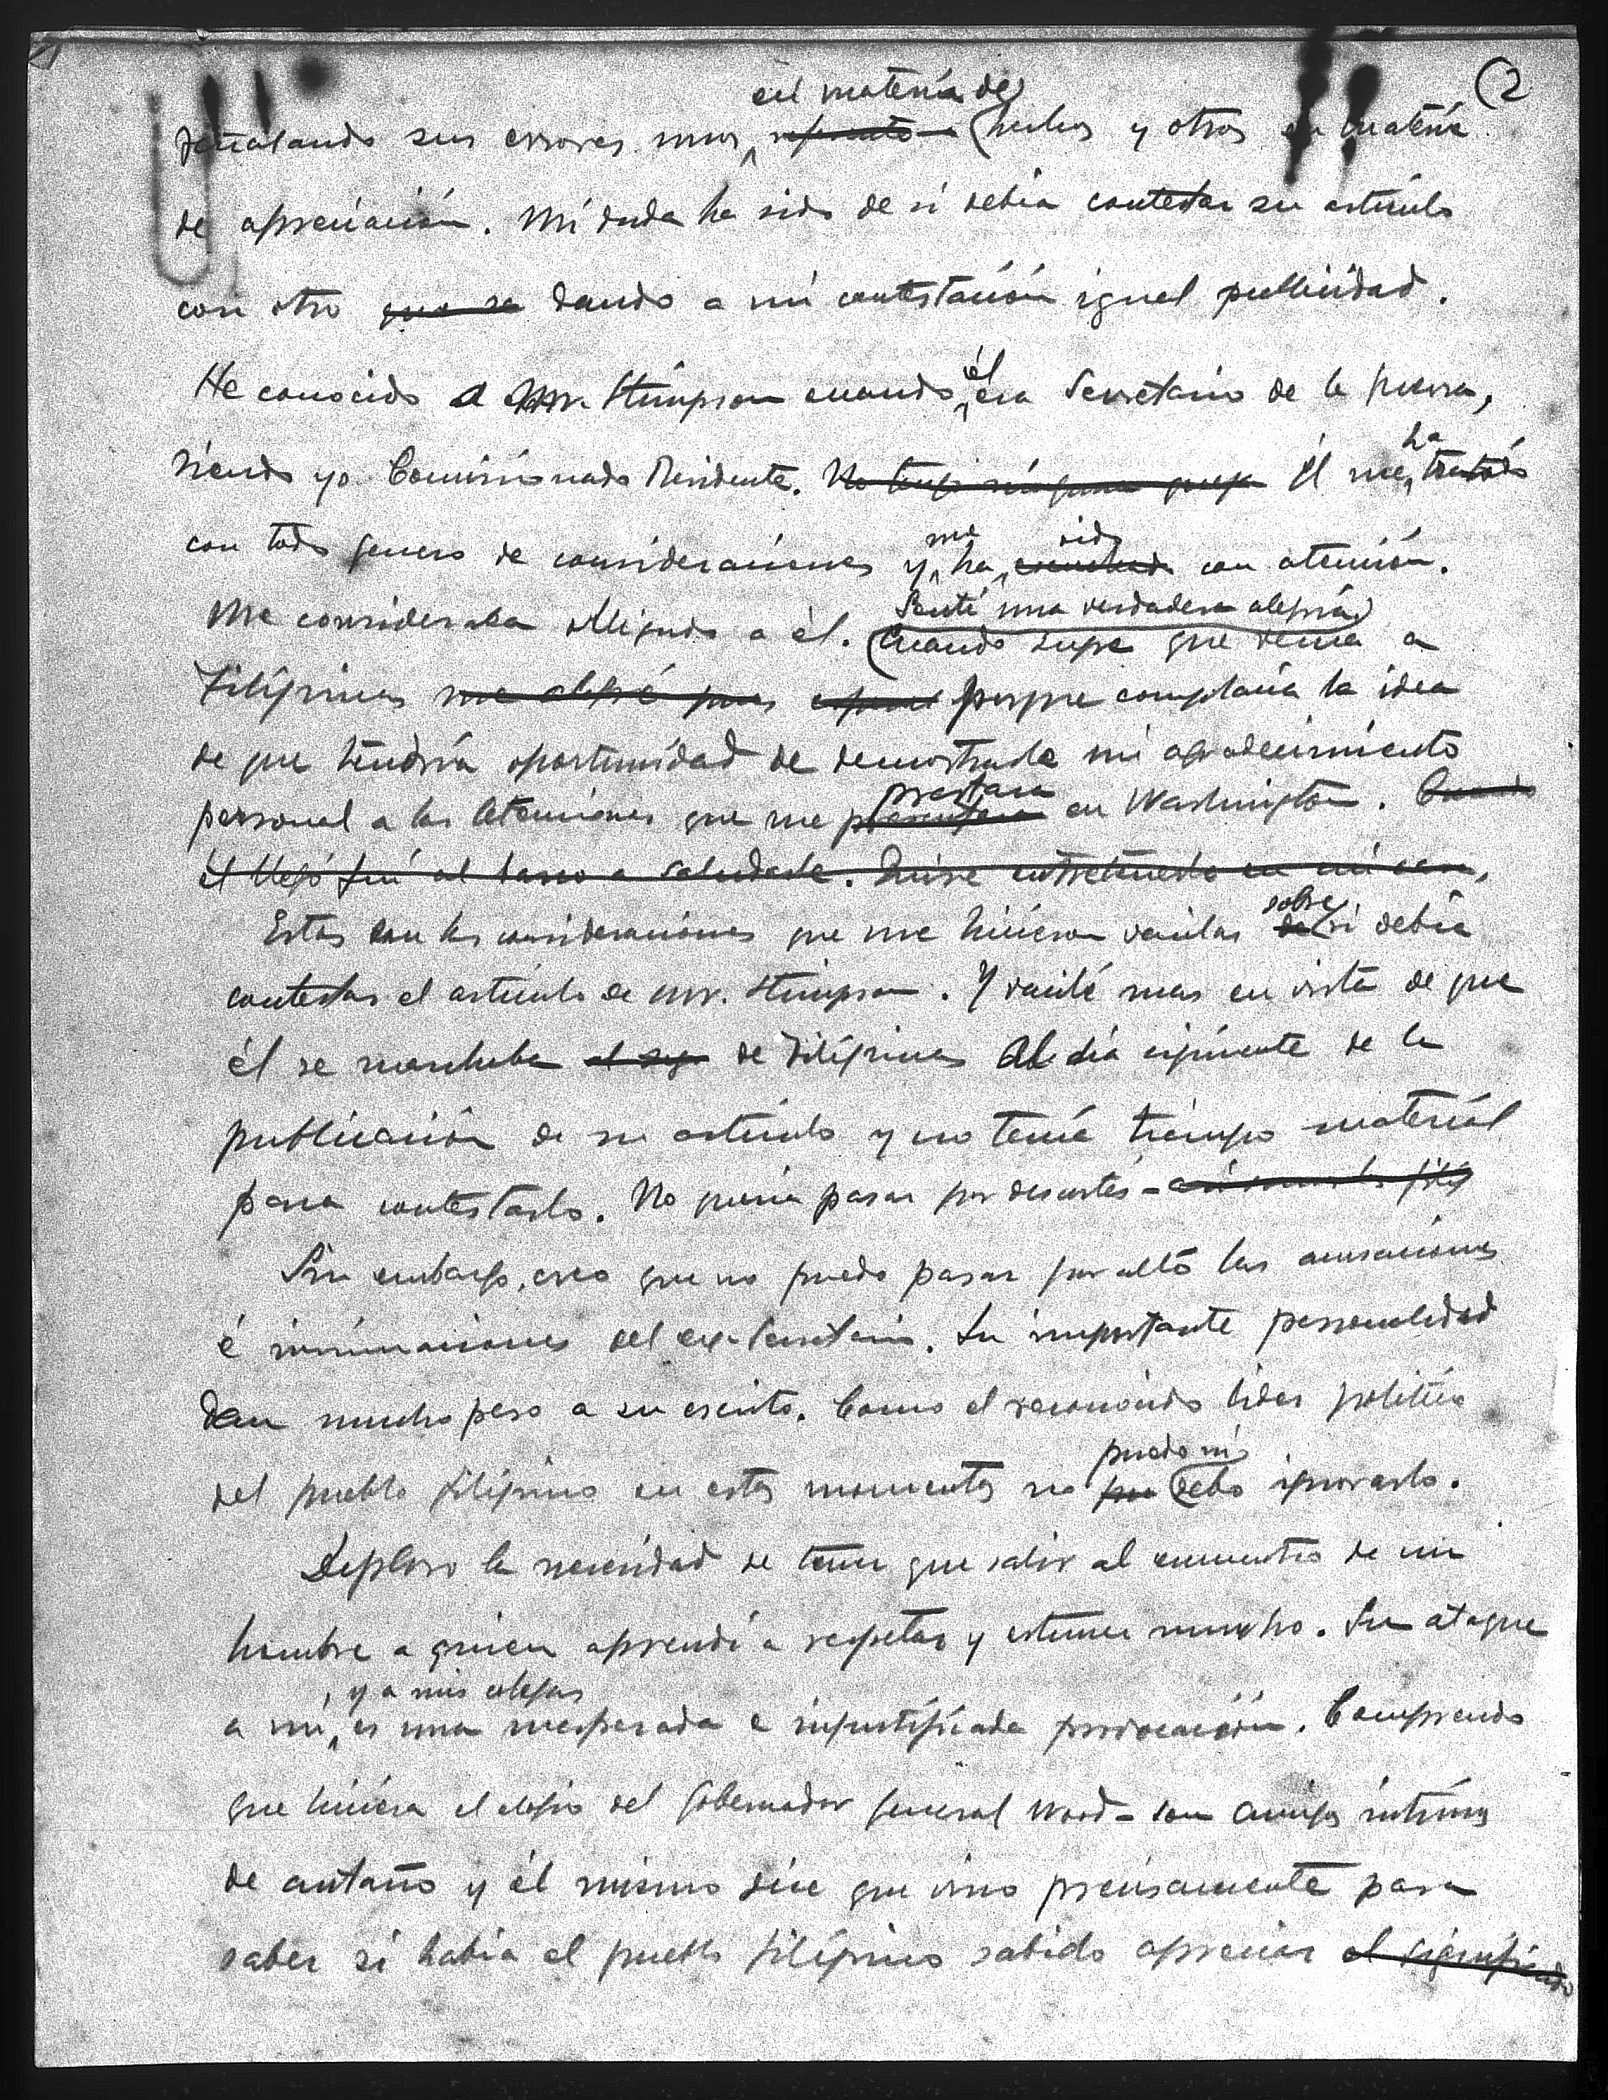 (2
en materia de
señalando sus errores unos respecto a hechos y otros en materia
de apreciación. Mi duda ha sido de si debía contestar su artículo
con otro que se dando a mi contestación igual publicidad.
He conocido a Mr. Stimpson cuando él era Secretario de la Guerra,
siendo yo Comisionado Residente. No tengo ninguna queja Él me ha tratado
con todo genero de consideraciones y me ha oido escuchado con atención.
Me consideraba obligado a él. Sentí una verdadera alegría cuando supe que venía a
Filipinas me alegré pues esperé porque complacía la idea
de que tendría oportunidad de demostrarle mi agradecimiento
personal a las atenciones que me prestara presentara en Washington. Cuando
él llegó fuí al barco a saludarle. Quise entretenerle en mi casa,
Estas son las consideraciones que me hicieron vacilar sobre de si debía
contestar el artículo de Mr. Stimpson. Y vacilé mas en vista de que
él se marchaba al sig de Filipinas al dia siguiente de la
publicación de su artículo y no tenía tiempo material
para contestarlo. No quería pasar por descortés -
Sin embargo, creo que no puedo pasar por alto las acusaciones
é insinuaciones del ex-Secretario. Su importante personalidad
dan mucho peso a su escrito. Como el reconocido lider politico
del pueblo filipino en estos momentos no pue puedo ni debo ignorarlo.
Deploro la necesidad de tener que salir al encuentro de un
hombre a quien aprendí a respetar y estimar mucho. Su ataque
a mí, y a mis colegas es una inesperada e injustificada provocación. Comprendo
que hiciera el elogio del Gobernador General Wood - son amigos intimos
de antaño y él mismo dice que vino precisamente para
saber si había el pueblo filipino sabido apreciar el significado